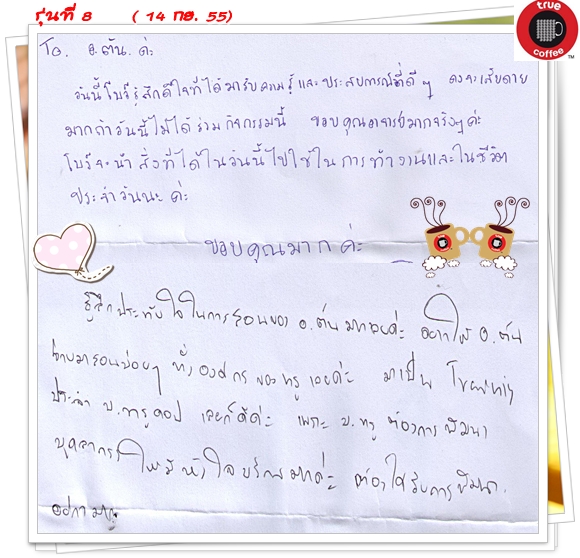 รุ่นที่ 8 ( 14 กย. 55)
true
coffee™
To. อ.ต้น. ค่ะ
วันนี้โบรู้สึกดีใจที่ได้มารับความรู้และประสบการณ์ที่ดีๆ คงจะเสียดาย
มากถ้าวันนี้ไม่ได้ร่วมกิจกรรมนี้ ขอบคุณอาจารย์มากจริงๆค่ะ
จะนำสิ่งที่ได้ในวันนี้ไปใช้ในการทำงานและในชีวิต
ประจำวันนะค่ะ
ขอบคุณมากค่ะ
รู้สึกประทับใจในการสอนของ อ.ต้น มากเลยค่ะ อยากให้ อ.ต้น
มาสอนบ่อยๆ ทั้งองค์กรของทรู เลยค่ะ มาเป็น
ประจำ บ.ทรู เลยก็ดีค่ะ เพราะ บ.ทรู ต้องการพัฒนา
บุคลากรให้มีหัวใจบริการมากค่ะ ต้องได้รับการพัฒนา